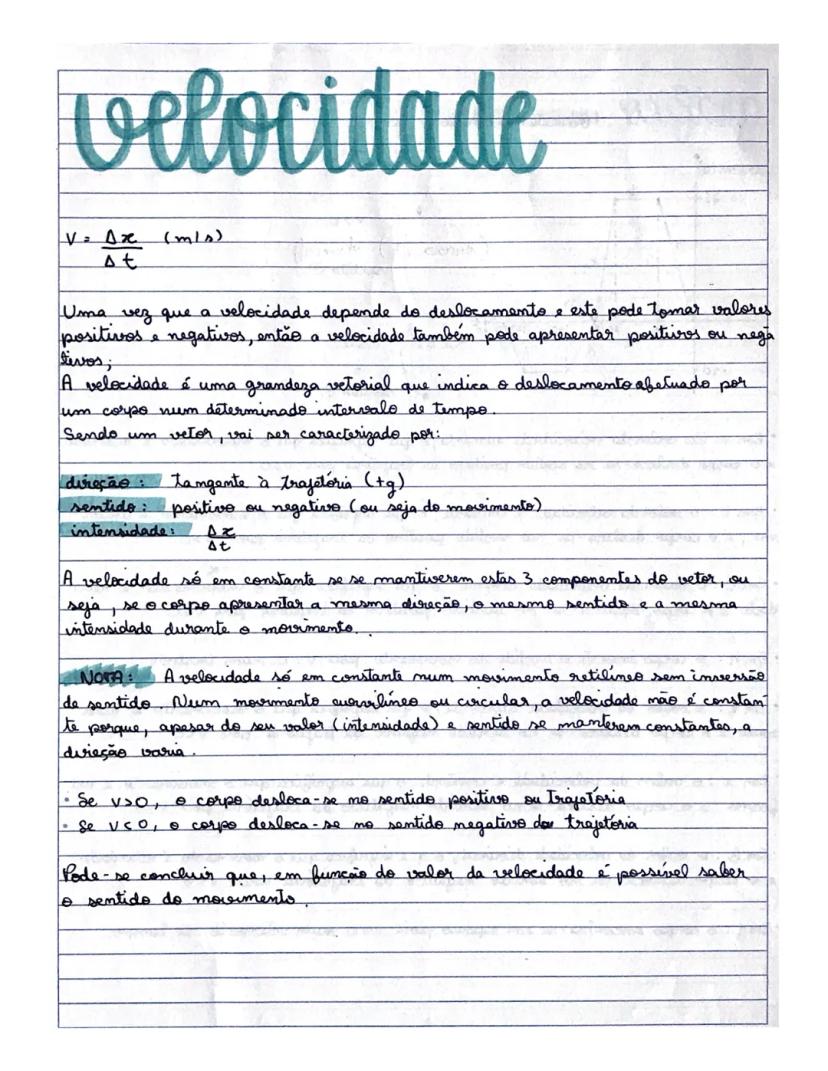 velocidade
V = Δx (m/s)
Δt
Uma vez que a velocidade depende do deslocamento e este pode tomar valores
positivos e negativos, então a velocidade também pode apresentar positivos ou nega
tivos;
A velocidade é uma grandeza vetorial que indica o deslocamento efetuado por
um corpo num determinado intervalo de tempo.
Sendo um vetor, vai ser caracterizado por:
direção: tangente à trajetória (tg)
sentido: positivo ou negativo (ou seja do movimento)
intensidade: Δx
Δt
A velocidade só em constante se se mantiverem estas 3 componentes do vetor, ou
seja, se o corpo apresentar a mesma direção, o mesmo sentido e a mesma
intensidade durante o movimento.
NOTA: A velocidade só em constante num movimento retilíneo sem inversão
de sentido. Num movimento curvilíneo ou circular, a velocidade não é constan
te porque, apesar do seu valor (intensidade) e sentido se manterem constantes, a
direção varia.
• Se v>0, o corpo desloca-se no sentido positivo ou trajetória
• Se v<0, o corpo desloca-se no sentido negativo da trajetória
Pode-se concluir que, em função do valor da velocidade é possível saber
o sentido do movimento.